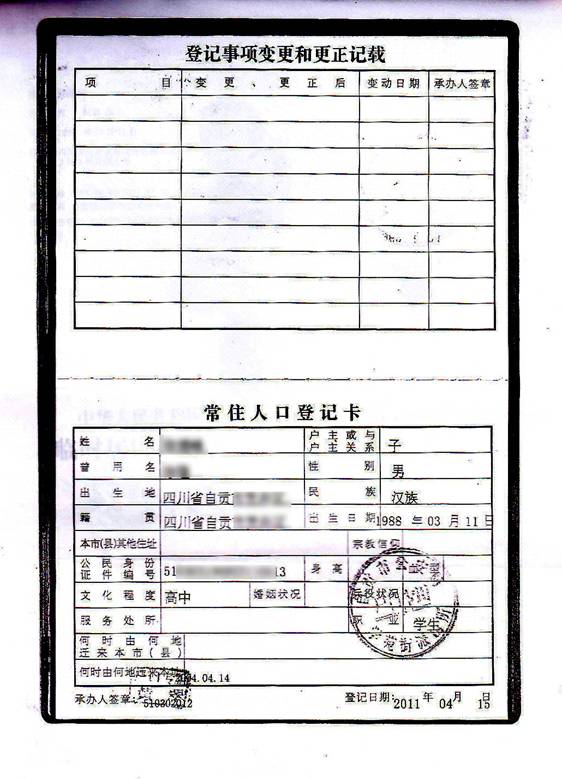 登记事项变更和更正记载
项 目 变 更 、 更 正 后 变动日期 承办人签章
常住人口登记卡
姓 名 户主或与户主关系 子
曾 用 名 性 别 男
出 生 地 四川省自贡 民 族 汉族
籍 贯 四川省自贡 出生日期 1988 年 03 月 11 日
本市(县)其他住址 宗教信仰
公民身份证件编号 51 13 身 高
文化程度 高中 婚姻状况 兵役状况
服务处所 职 业 学生
何时由何地迁来本市(县)
何时由何地迁来本址 2004.04.14
承办人签章: 510302012 登记日期: 2011 年 04 月 15 日